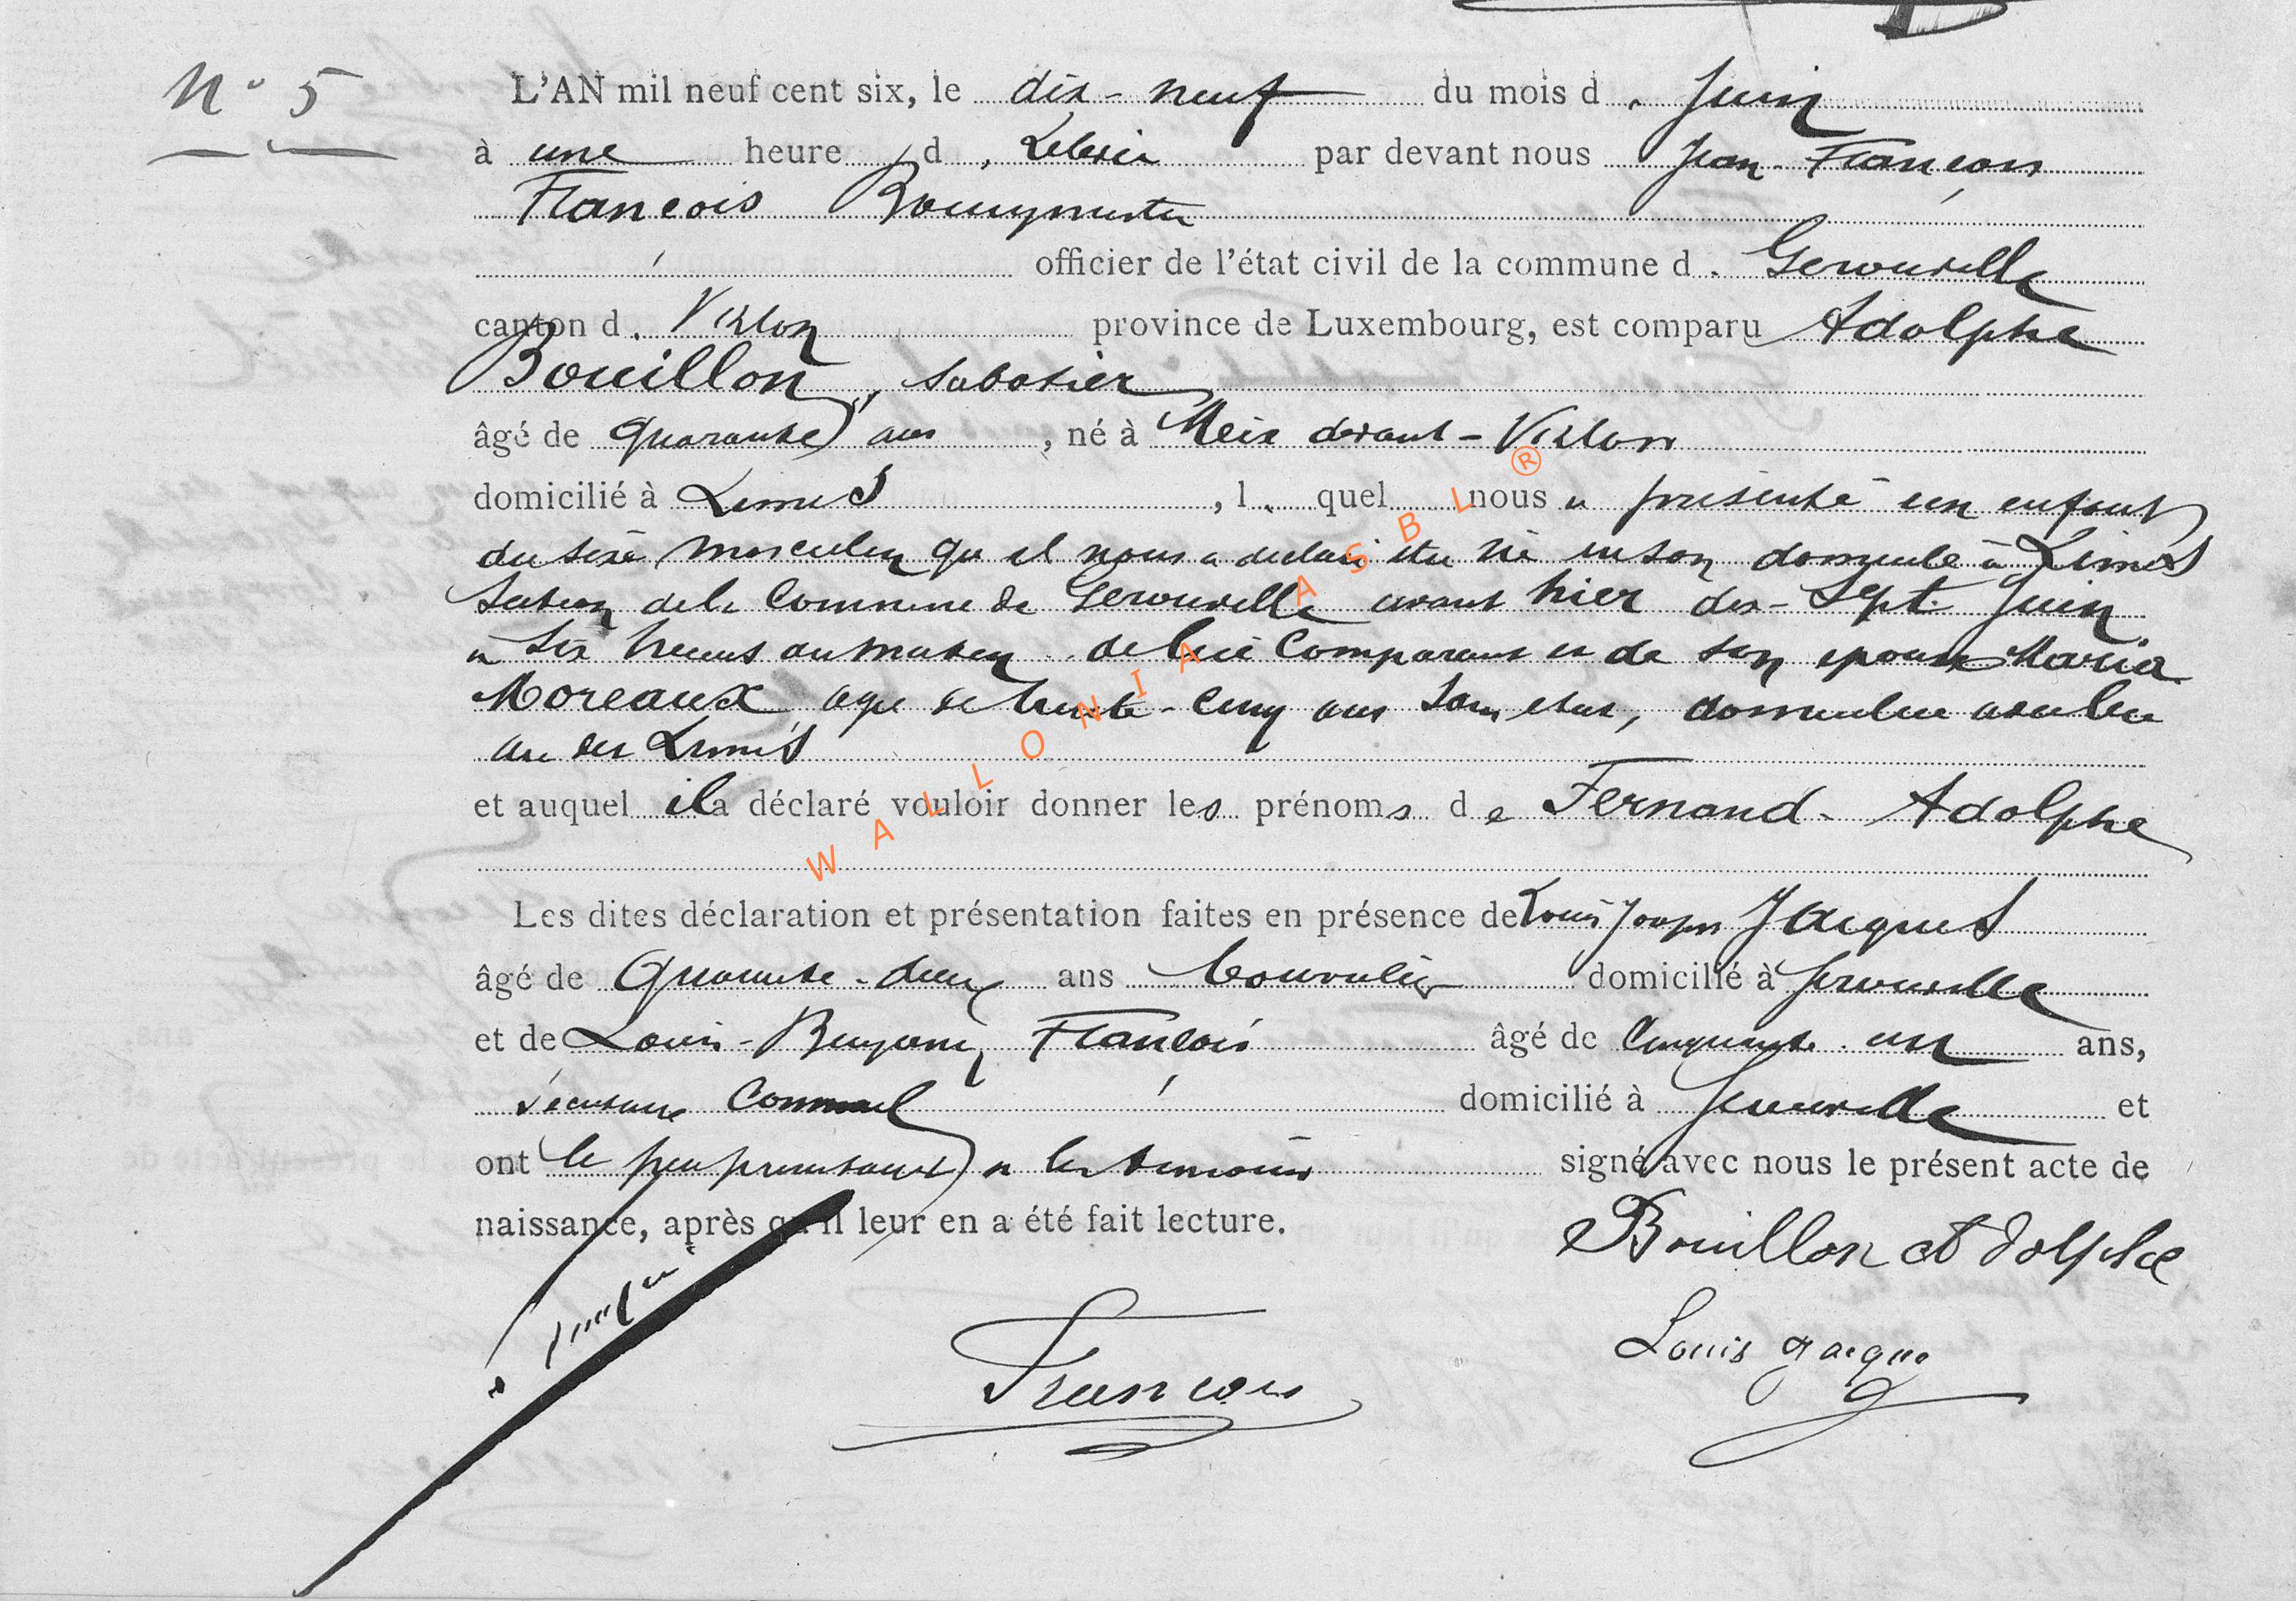 N° 5
L'AN mil neuf cent six, le dix-neuf du mois d. Juin
à une heure d. Relevée par devant nous Jean-François
François Bourgmestre
officier de l'état civil de la commune d. Gerouville
canton d. Virton province de Luxembourg, est comparu Adolphe
Bouillon, sabotier
âgé de quarante ans, né à Meix devant-Virton
domicilié à Limes, l. quel nous a présenté un enfant
du sexe masculin qu'il nous a déclaré être né en son domicile à Limes
Section de la Commune de Gerouville avant hier dix-sept Juin
à six heures du matin de lui Comparant et de son épouse Maria
Moreaux, agée de trente-cinq ans sans état, domiciliée avec lui
au dit Limes
et auquel il a déclaré vouloir donner les prénoms de Fernand-Adolphe
Les dites déclaration et présentation faites en présence de Louis Joseph Jacques
âgé de Quarante-deux ans domicilié à Gerouville
et de Louis-Benjamin François âgé de Cinquante-un ans,
Sécretaire Communal domicilié à Gerouville et
ont le père présentant et les témoins signé avec nous le présent acte de
naissance, après qu'il leur en a été fait lecture.
Bouillon Adolphe
François
Louis Jacques
WALLONIA ASBL ®